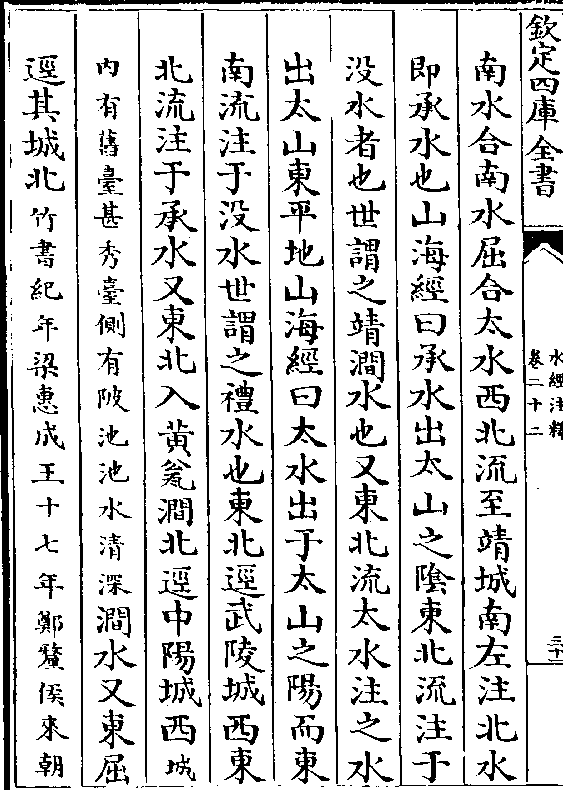 欽定四庫全書
水經注釋
卷二十二
三十一
南水合南水屈合太水西北流至靖城南左注北水
即承水也山海經曰承水出太山之陰東北流注于
沒水者也世謂之靖澗水也又東北流太水注之水
出太山東平地山海經曰太水出于太山之陽而東
南流注于沒水世謂之禮水也東北逕武陵城西東
北流注于承水又東北入黃瓮澗北逕中陽城西城
內有舊臺甚秀臺側有陂池池水清深澗水又東屈
逕其城北竹書紀年梁惠成王十七年鄭釐侯來朝